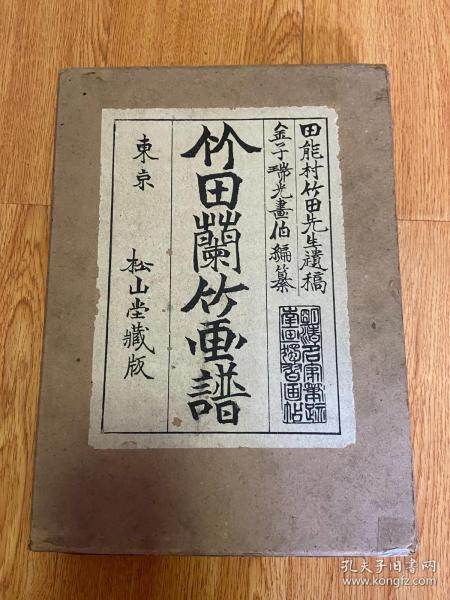 田能村竹田先生遺稿
金子瑞光畫伯編纂
竹田蘭竹画譜
東京 松山堂藏版
孔夫子旧书网
www.kongfz.com